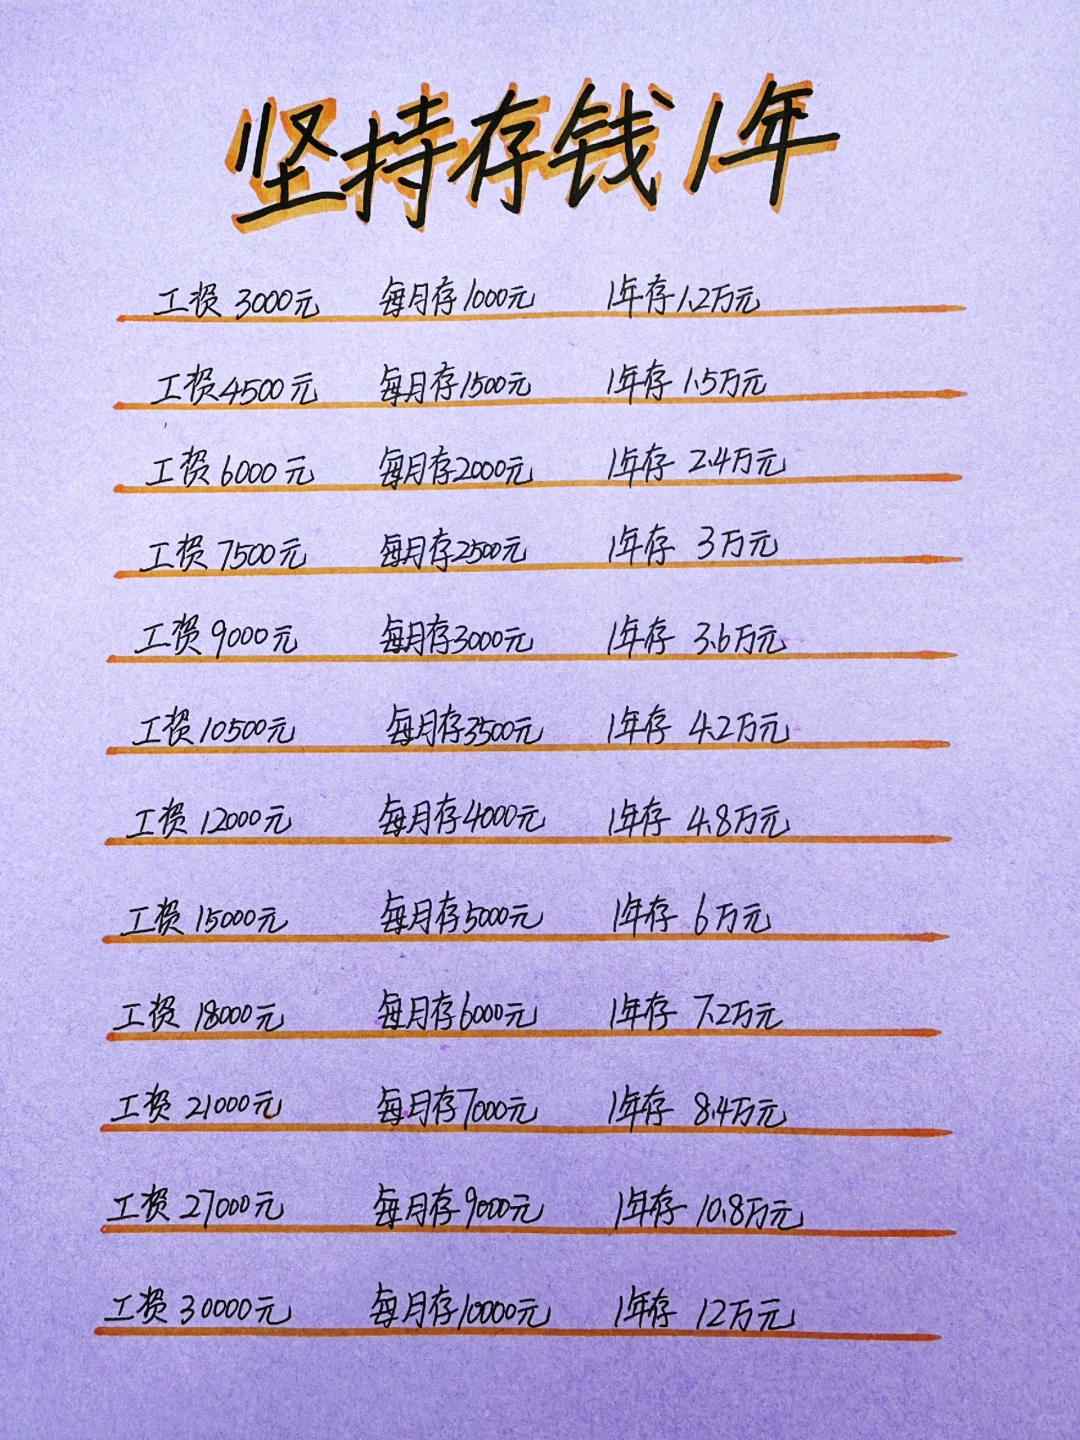 坚持存钱1年
工资 3000元 每月存1000元 1年存1.2万元
工资4500元 每月存1500元 1年存 1.5万元
工资 6000元 每月存2000元 1年存 2.4万元
工资 7500元 每月存2500元 1年存 3万元
工资 9000元 每月存3000元 1年存 3.6万元
工资10500元 每月存3500元 1年存 4.2万元
工资 12000元 每月存4000元 1年存 4.8万元
工资 15000元 每月存5000元 1年存 6万元
工资 18000元 每月存6000元 1年存 7.2万元
工资 21000元 每月存7000元 1年存 8.4万元
工资 27000元 每月存9000元 1年存 10.8万元
工资 30000元 每月存10000元 1年存 12万元